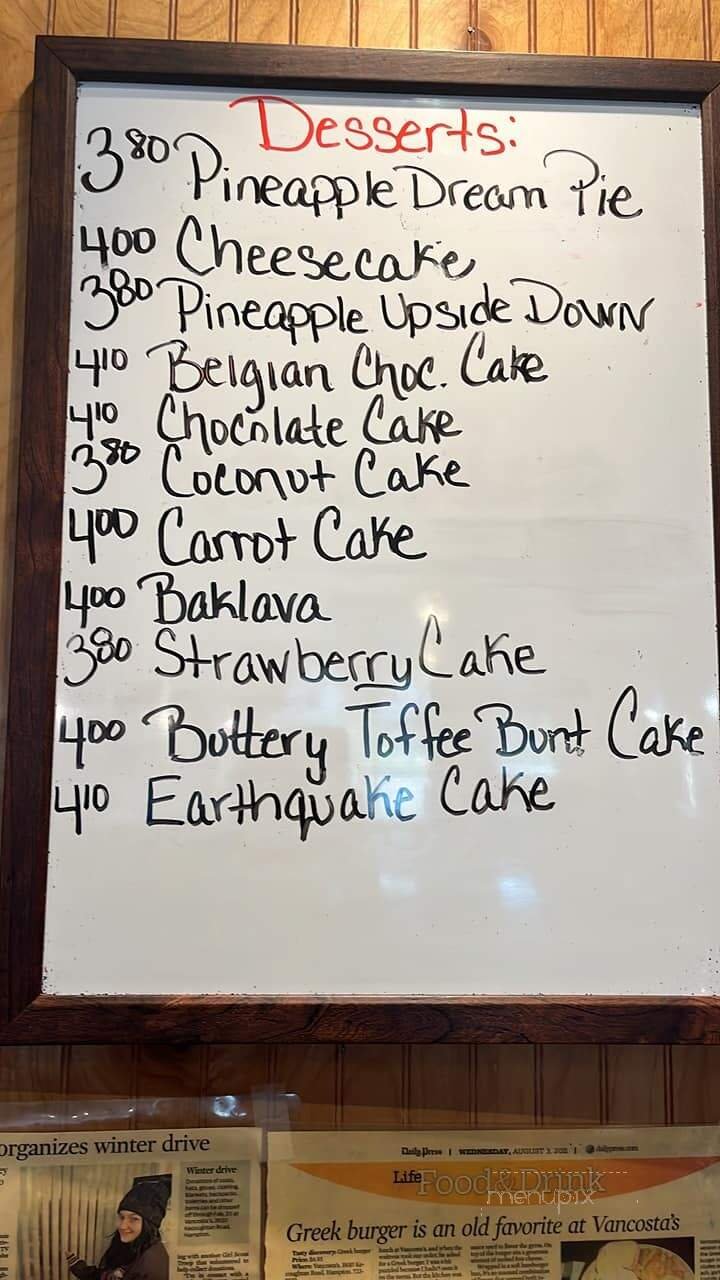 Desserts:
3 80 Pineapple Dream Pie
400 Cheesecake
380 Pineapple Upside Down
410 Belgian Choc. Cake
410 Chocolate Cake
3 80 Coconut Cake
400 Carrot Cake
400 Baklava
380 Strawberry Cake
400 Buttery Toffee Bunt Cake
410 Earthquake Cake
organizes winter drive
Winter drive
Daily Press | WEDNESDAY, AUGUST 3, 2011 | dailypress.com
Life Food & Drink
menupix
Greek burger is an old favorite at Vancosta's
Tasty discovery: Greek burger